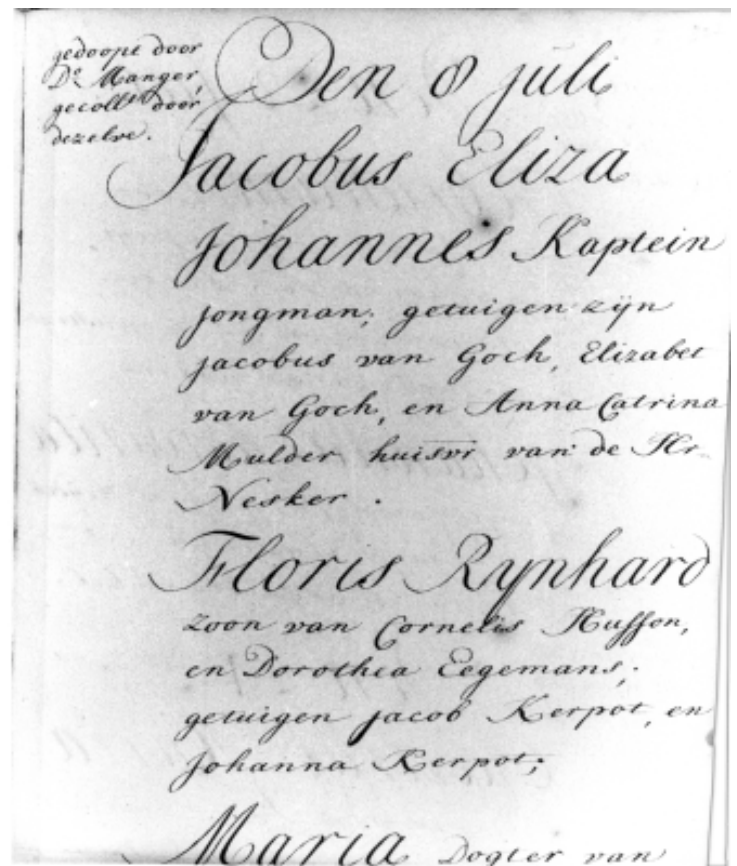 gedoopt door
Ds Manger,
gecollt door
dezelve.
Den 8 juli
Jacobus Eliza
Johannes Kaptein
jongman; getuigen zijn
jacobus van Goch, Elizabet
van Goch, en Anna Catrina
Mulder huisvr van de Hr
Nesker.
Floris Rynhard
zoon van Cornelis Husson,
en Dorothea Eegemans;
getuigen jacob Kerpot, en
johanna Kerpot;
Maria Dogter van